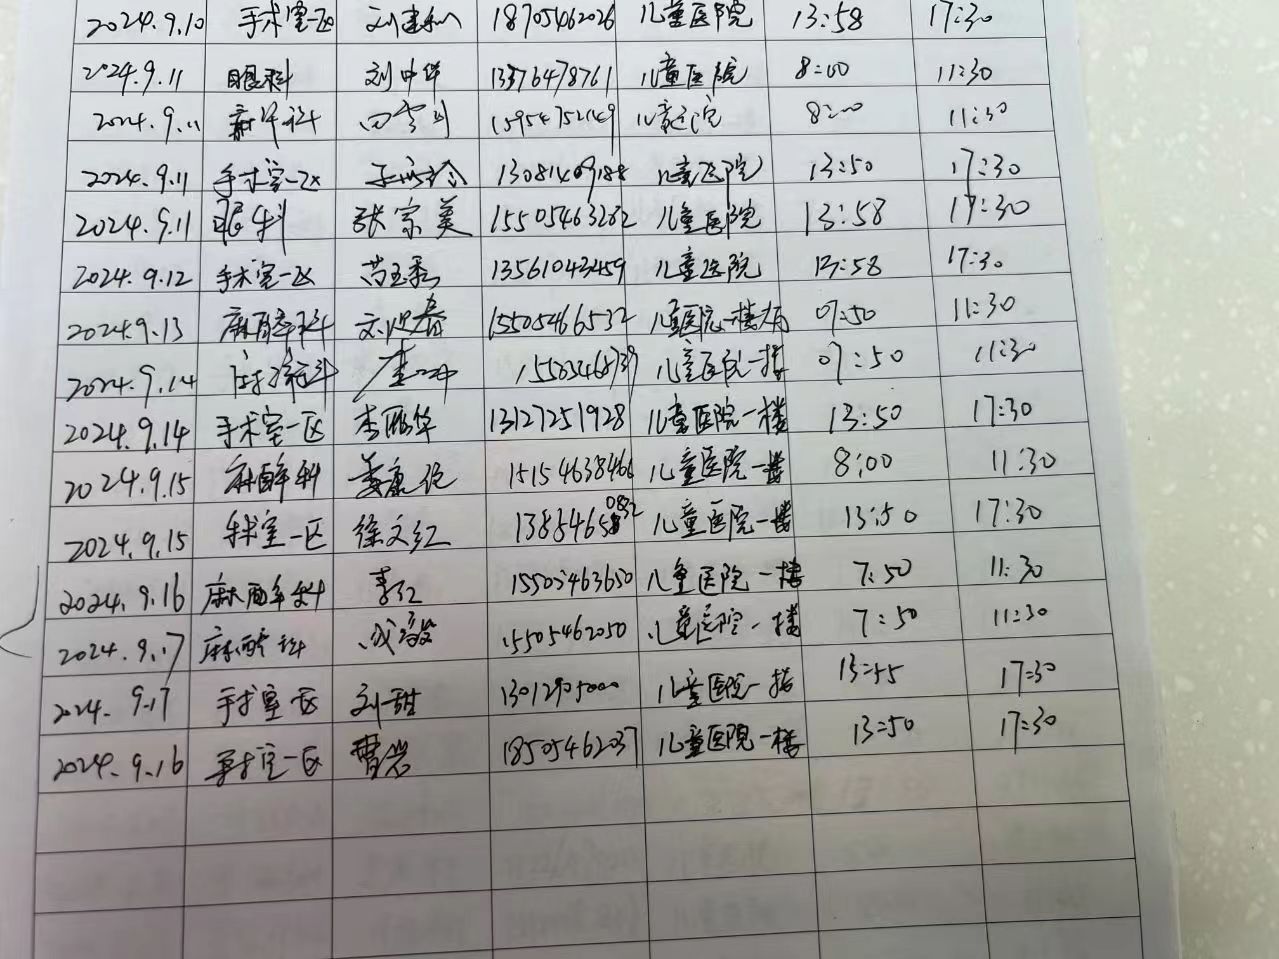 2024.9.10 手术室一区 刘建和 18705462026 儿童医院 13:58 17:30
2024.9.11 眼科 刘中华 13376478761 儿童医院 8:00 11:30
2024.9.11 麻醉科 15954752149 儿童医院 8:00 11:30
2024.9.11 手术室一区 13081409188 儿童医院 13:50 17:30
2024.9.11 眼科 张宗美 15505463262 儿童医院 13:58 17:30
2024.9.12 手术室一区 苗玉秀 13561043459 儿童医院 13:58 17:30
2024.9.13 麻醉科 15505466532 儿童医院一楼 07:50 11:30
2024.9.14 麻醉科 儿童医院一楼 07:50 11:30
2024.9.14 手术室一区 李丽华 13127251928 儿童医院一楼 13:50 17:30
2024.9.15 麻醉科 15154638466 儿童医院一楼 8:00 11:30
2024.9.15 手术室一区 徐文红 儿童医院一楼 13:50 17:30
2024.9.16 麻醉科 李红 15505463650 儿童医院一楼 7:50 11:30
2024.9.17 麻醉科 成毅 15505462050 儿童医院一楼 7:50 11:30
2024.9.17 手术室一区 刘甜 13012905000 儿童医院一楼 13:55 17:30
2024.9.16 手术室一区 曹岩 18505462037 儿童医院一楼 13:50 17:30